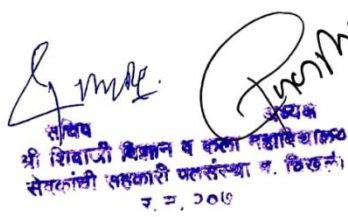 सचिव अध्यक्ष
श्री शिवाजी विज्ञान व कला महाविद्यालय
सेवकांची सहकारी पतसंस्था म. चिखली
र. नं. २०७